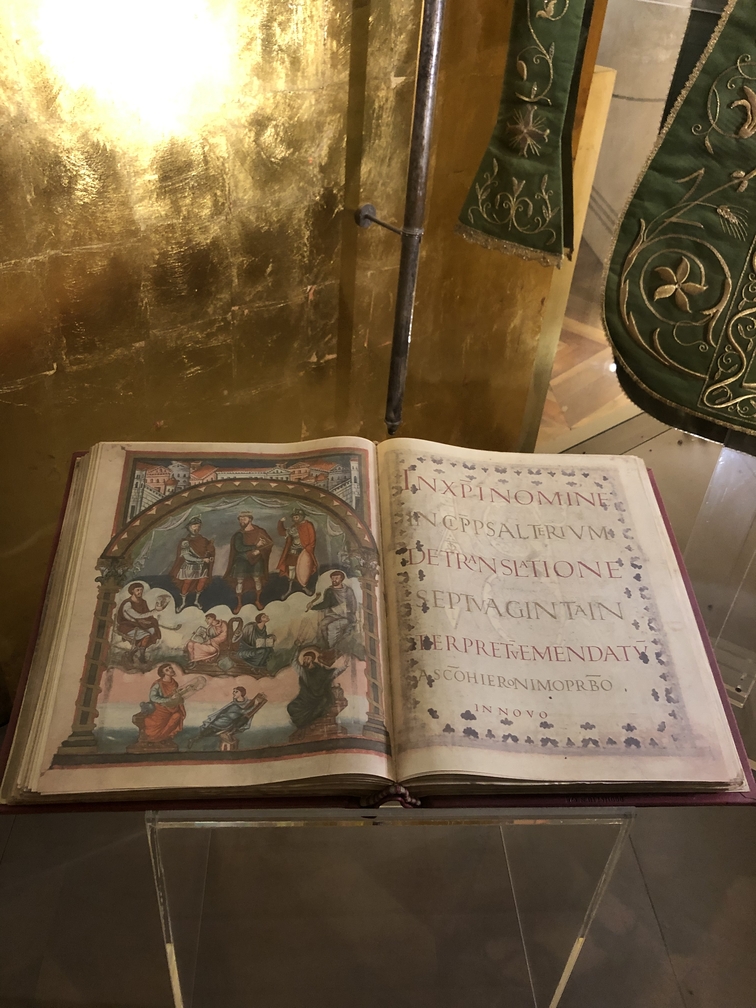 INXPINOMINE
INCIPPSALTERIVM
DETRANSLATIONE
SEPTVAGINTAIN
TERPRETVEMENDATV̅
ASCO̅HIERONIMOPRB̅O
INNOVO